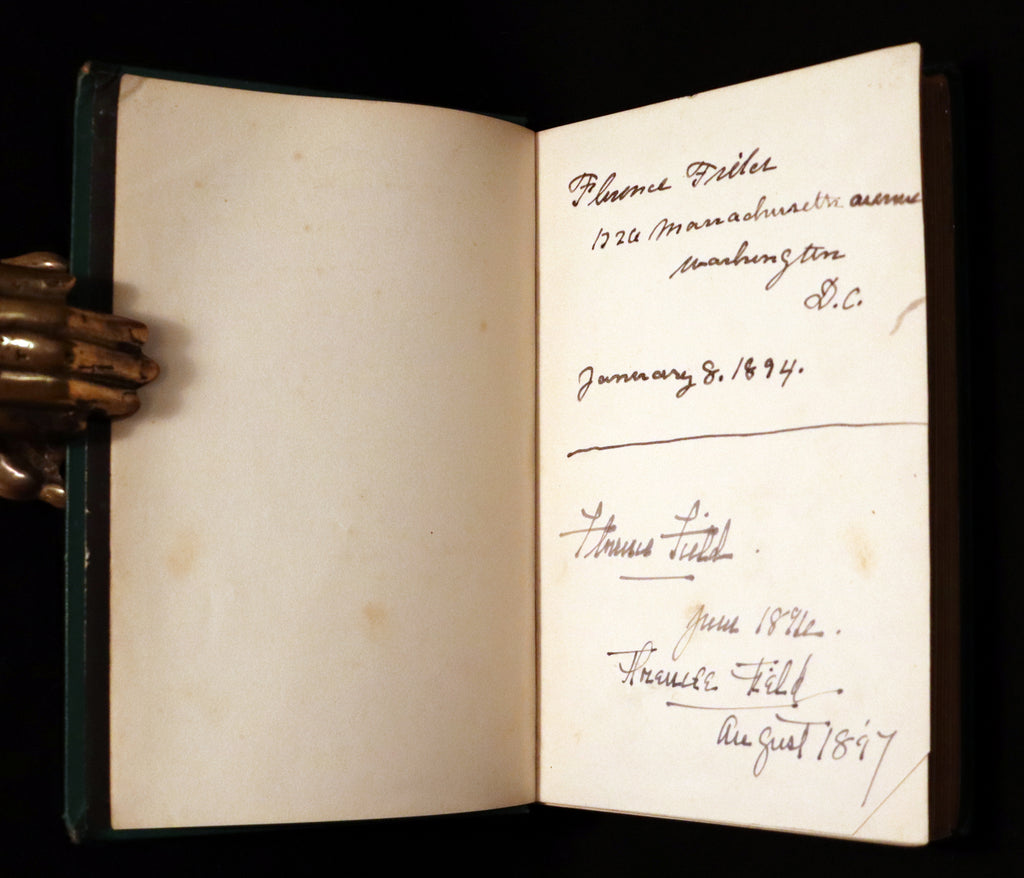 Florence Field
Massachusetts avenue
Washington
D.C.
January 8. 1894.
Florence Field.
June 1896.
Florence Field.
August 1897